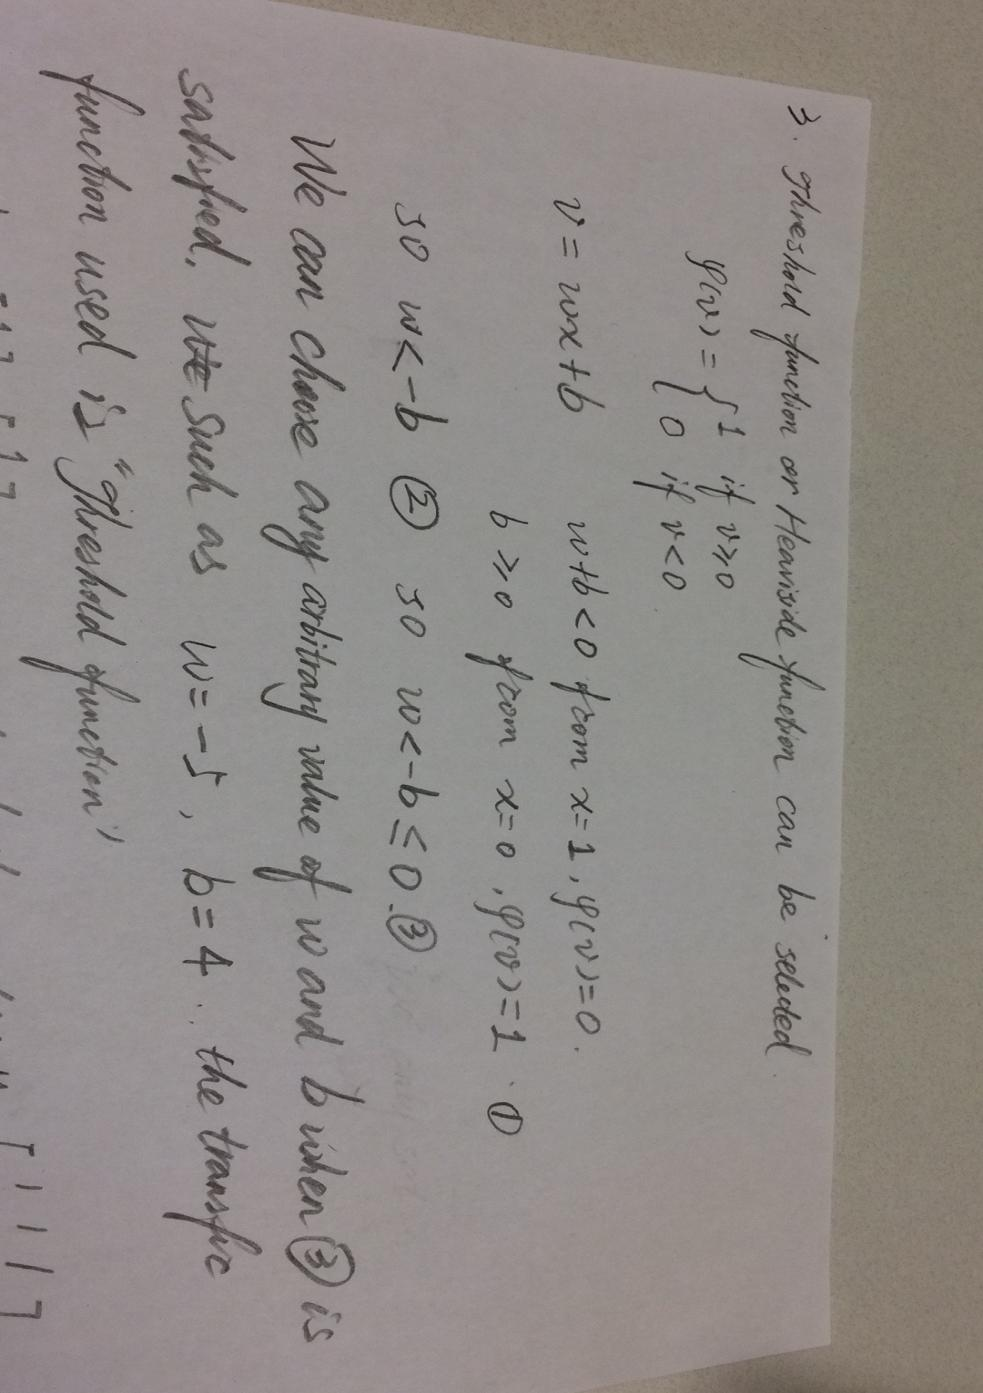 3. Threshold function or Heaviside function can be selected.
φ(v) = { 1 if v≥0
0 if v<0.
v = wx+b w+b<0 from x=1, φ(v)=0.
b≥0 from x=0, φ(v)=1. ①
so w<-b ② so w<-b≤0.③
We can choose any arbitrary value of w and b when ③ is
satisfied. such as w=-5, b=4. the transfic
function used is "Threshold function"